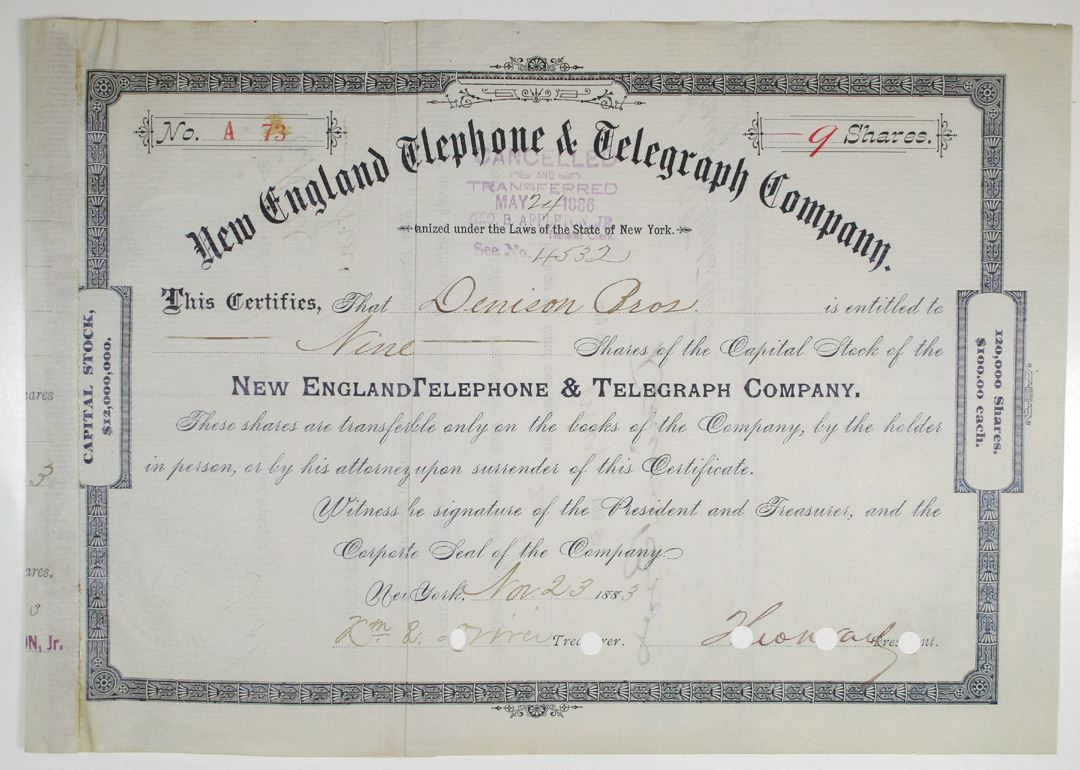 No. A 73
9 Shares.
New England Tlephone & Telegraph Company.
CANCELLED
AND
TRANSFERRED
MAY 24 1886
GEO. B. APPLETON, JR.
Transfer Clerk.
anized under the Laws of the State of New York.
See No. 4532
This Certifies, That Denison Bros. is entitled to
Nine Shares of the Capital Stock of the
NEW ENGLAND TELEPHONE & TELEGRAPH COMPANY.
These shares are transferble only on the books of the Company, by the holder
in person, or by his attorney upon surrender of this Certificate.
Witness he signature of the President and Treasurer, and the
Corporte Seal of the Company.
New York, Nov. 23 1883
Wm R. Driver Treasurer.
President.
CAPITAL STOCK,
$12,000,000.
120,000 Shares.
$100.00 each.
ares
3
ares,
3
ON, Jr.